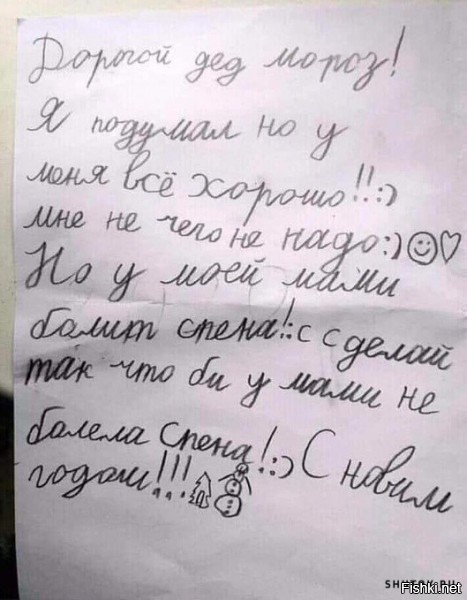 Дорогой дед мороз!
Я подумал но у
меня всё хорошо!!:)
мне не чего не надо:)☺♡
Но у моей мами
болит спена!:с сделай
так что би у мами не
болела Спена!:) С новим
годом!!!
Fishki.net